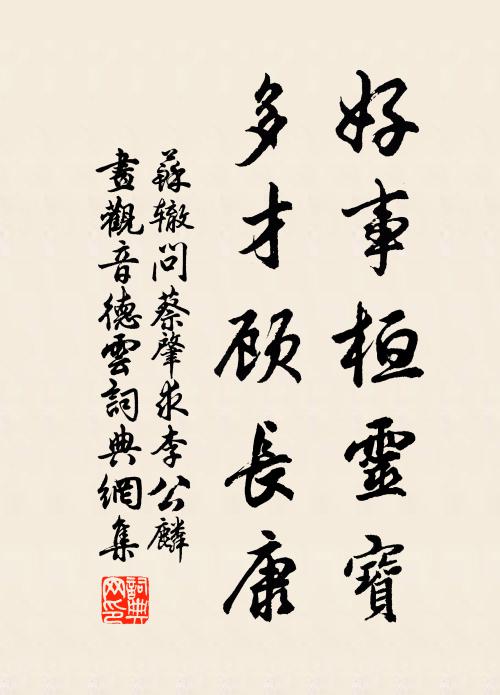 好事桓靈寶
多才顾長康
蘇辙问蔡肇求李公麟
畫觀音德雲詞典網集
詞典
网印